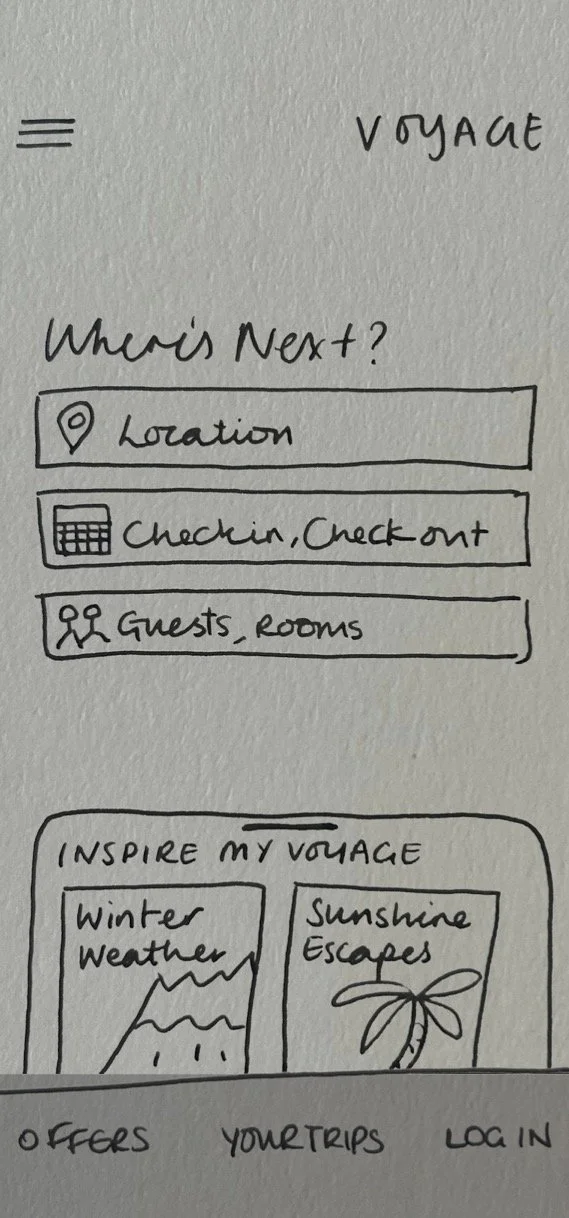 VOYAGE
Where's Next?
Location
Checkin, Checkout
Guests, Rooms
INSPIRE MY VOYAGE
Winter
Weather
Sunshine
Escapes
OFFERS
YOUR TRIPS
LOG IN